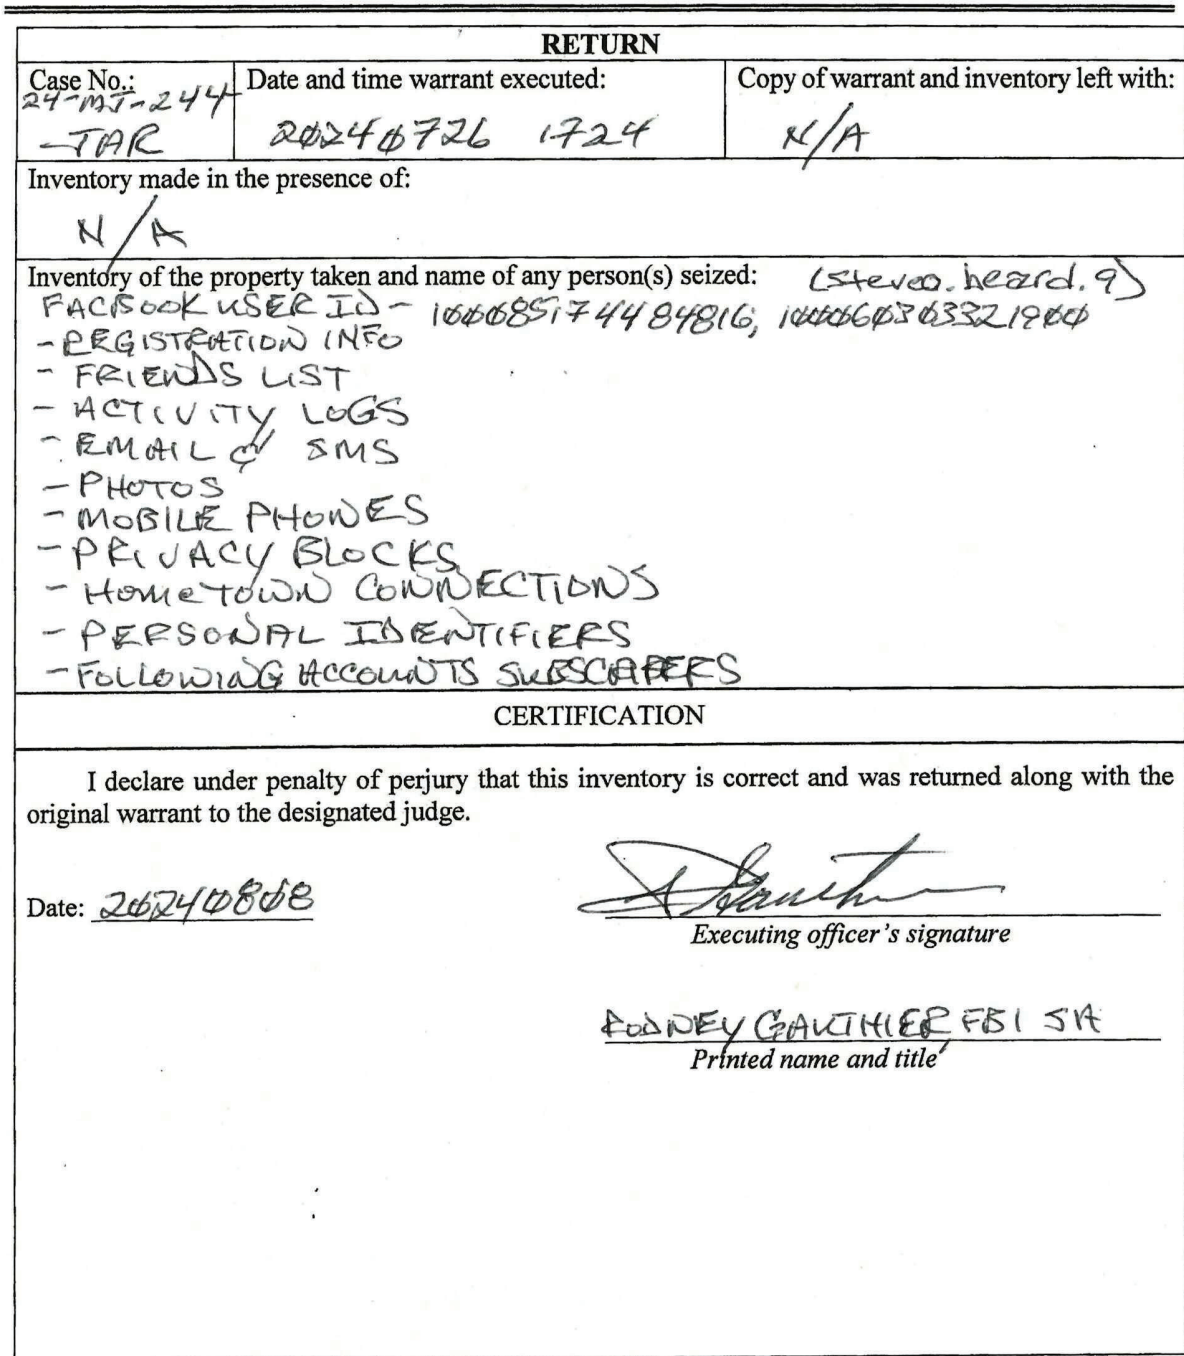 RETURN
Case No.: Date and time warrant executed: Copy of warrant and inventory left with:
24-MJ-244
-JAR 20240726 1724 N/A
Inventory made in the presence of:
N/A
Inventory of the property taken and name of any person(s) seized: (steven.beard.9)
FACBOOK USER ID - 100085174484816, 100060303321900
- REGISTRATION INFO
- FRIENDS LIST
- ACTIVITY LOGS
- EMAIL & SMS
- PHOTOS
- MOBILE PHONES
- PRIVACY BLOCKS
- HOMETOWN CONNECTIONS
- PERSONAL IDENTIFIERS
- FOLLOWING ACCOUNTS
CERTIFICATION
I declare under penalty of perjury that this inventory is correct and was returned along with the
original warrant to the designated judge.
Date: 20240808
Executing officer's signature
RODNEY GAUTHIER, FBI SA
Printed name and title